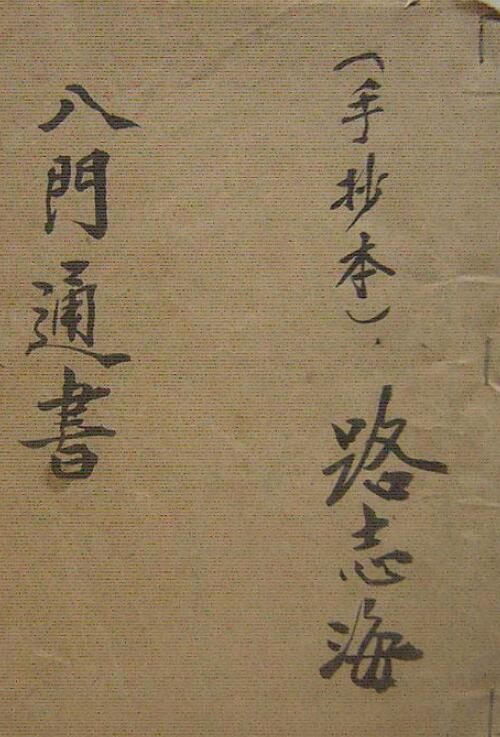 (手抄本).
路志海
八門通書